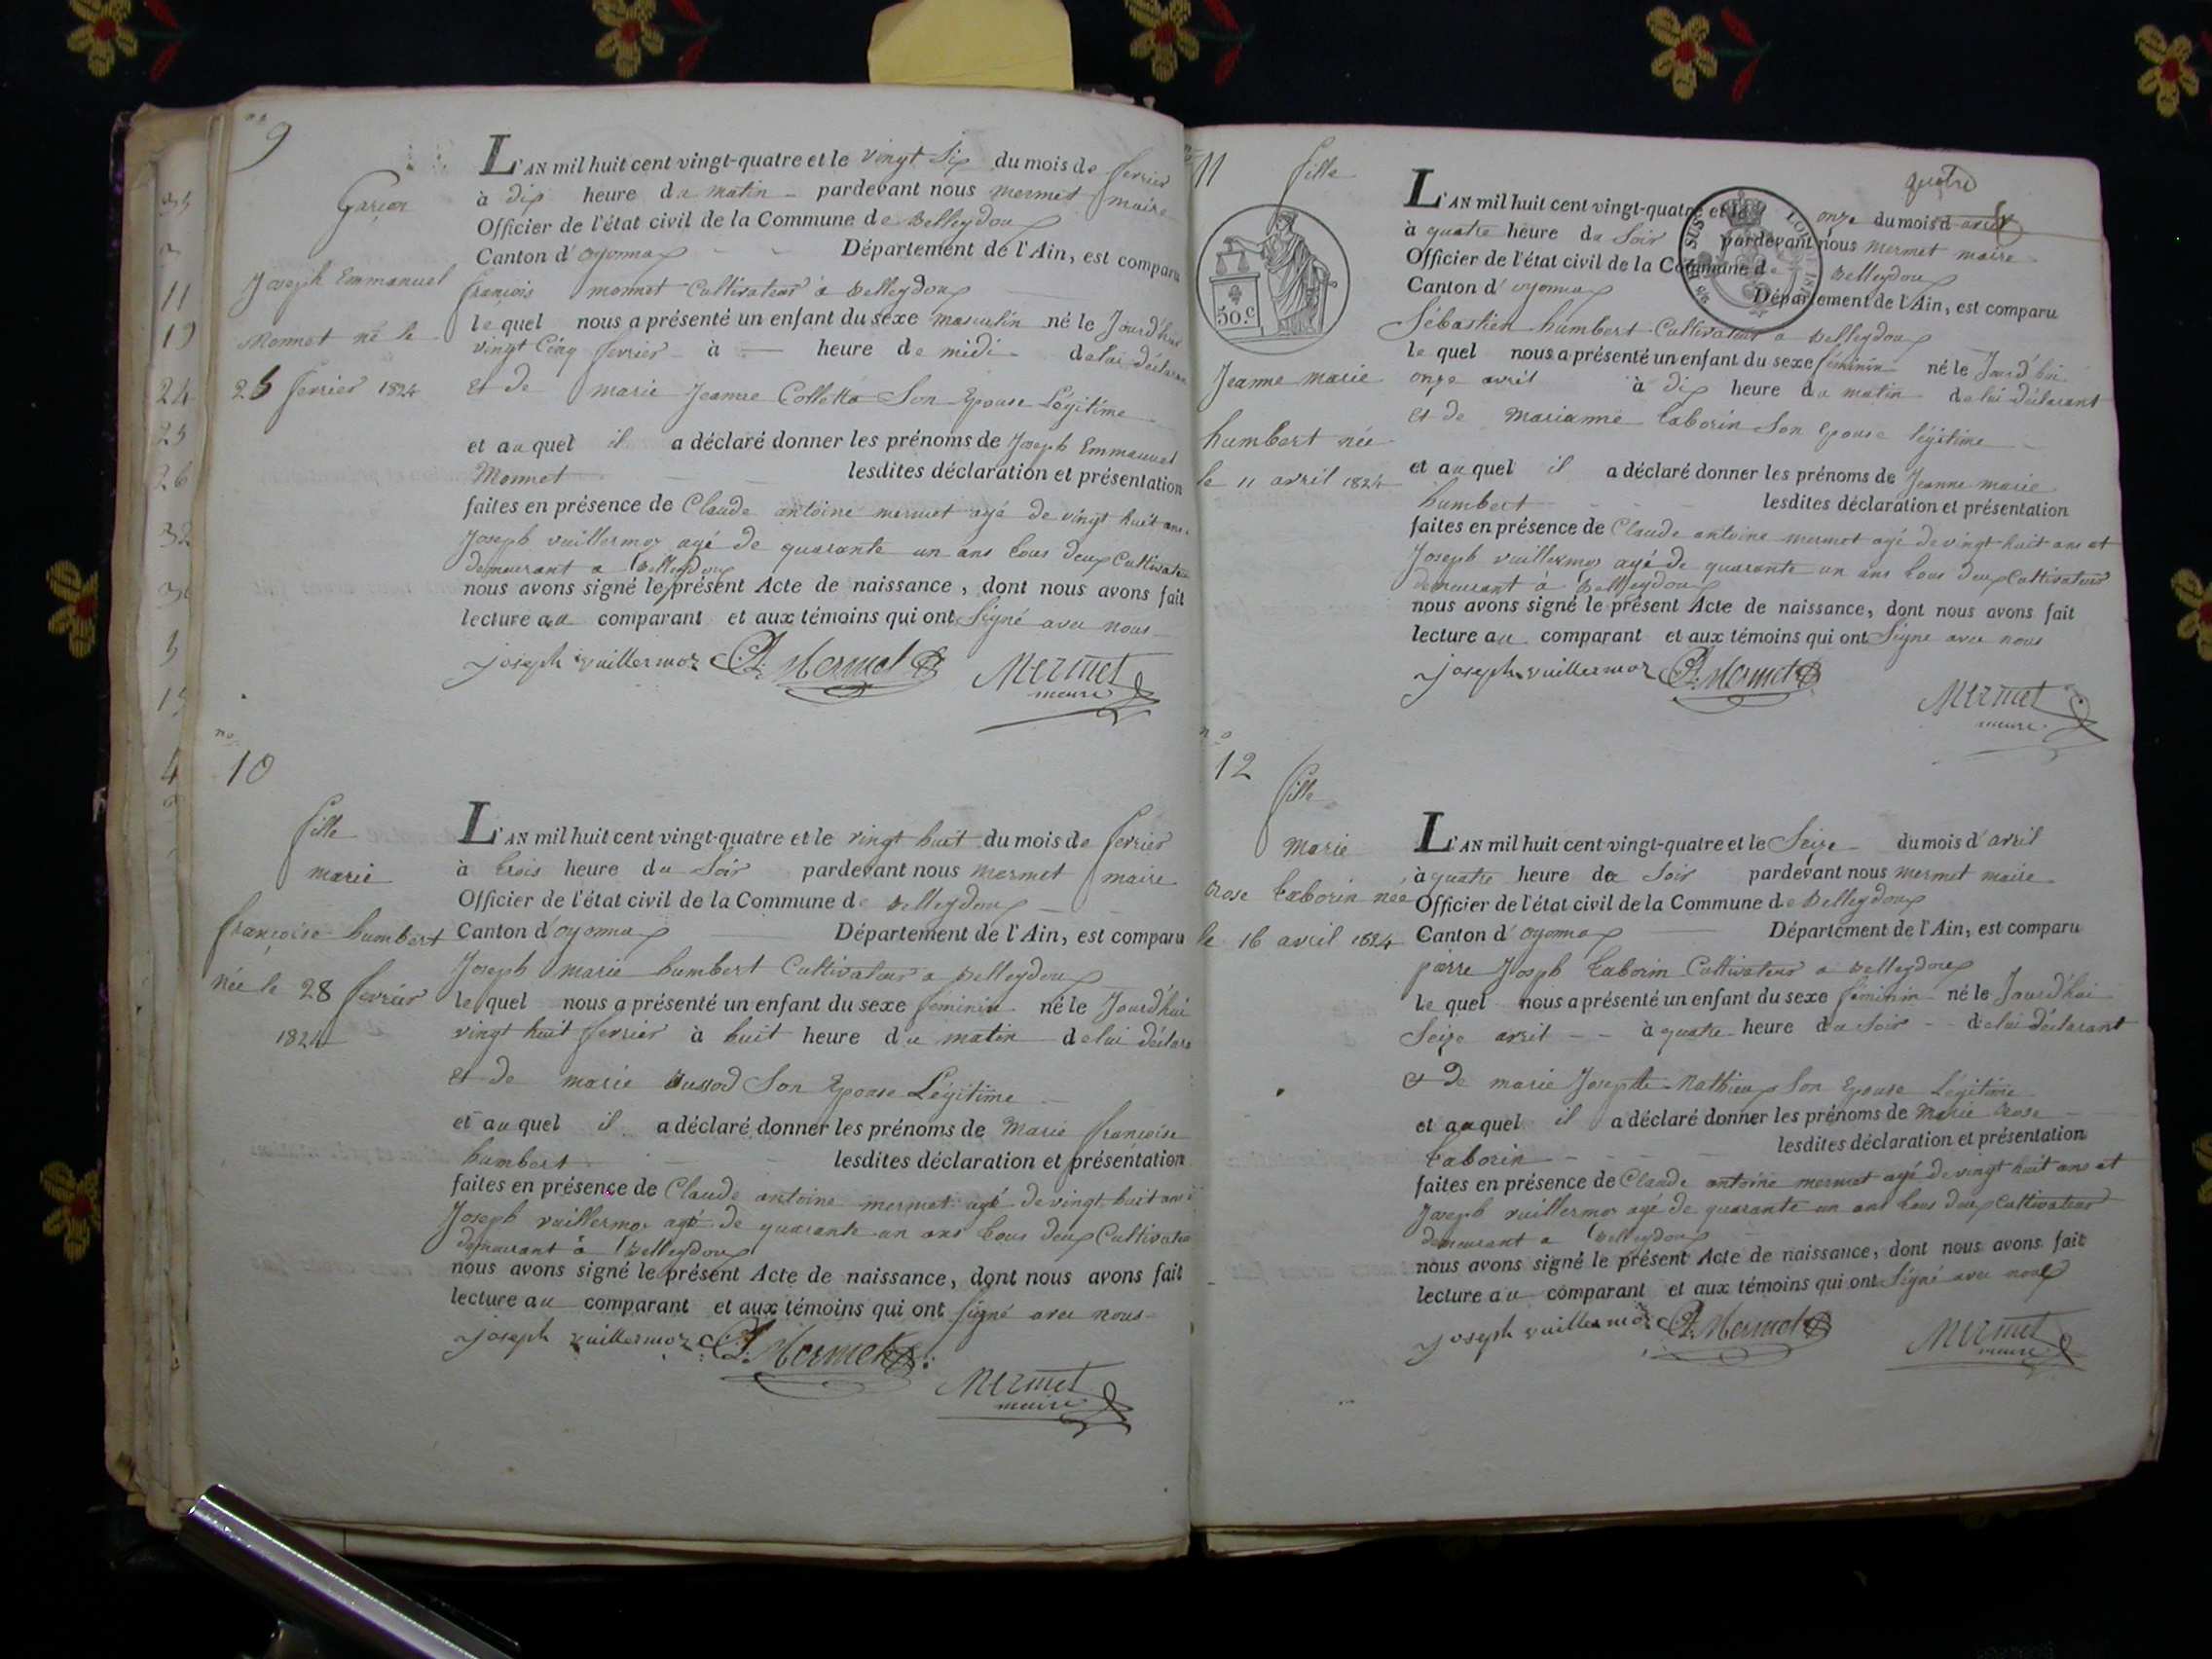 no
9
Garçon
Joseph Emmanuel
Monnet né le
25 fevrier 1824
L'AN mil huit cent vingt-quatre et le vingt Six du mois de fevrier
à dix heure du matin pardevant nous mermet maire
Officier de l'état civil de la Commune de Belleydoux
Canton d'oyonnax Département de l'Ain, est comparu
françois monnet Cultivateur à Belleydoux
le quel nous a présenté un enfant du sexe masculin né le Jourd'hui
vingt Cinq fevrier à heure de midi de lui déclarant
et de marie Jeanne Colletta Son Epouse Légitime
et au quel il a déclaré donner les prénoms de Joseph Emmanuel
Monnet lesdites déclaration et présentation
faites en présence de Claude antoine mermet agé de vingt huit ans
Joseph vuillermoz agé de quarante un ans tous deux Cultivateu
demeurant a Belleydoux
nous avons signé le présent Acte de naissance, dont nous avons fait
lecture au comparant et aux témoins qui ont Signé avec nous
joseph vuillermoz C.A. Mermet Mermet
maire
no
10
fille
marie
françoise humbert
née le 28 fevrier
1824
L'AN mil huit cent vingt-quatre et le vingt huit du mois de fevrier
à trois heure du Soir pardevant nous mermet maire
Officier de l'état civil de la Commune de Belleydoux
Canton d'oyonnax Département de l'Ain, est comparu
Joseph marie humbert Cultivateur a Belleydoux
le quel nous a présenté un enfant du sexe feminin né le Jourd'hui
vingt huit fevrier à huit heure du matin de lui déclara
et de marie Bussod Son Epouse Légitime
et au quel il a déclaré donner les prénoms de Marie françoise
humbert lesdites déclaration et présentation
faites en présence de Claude antoine mermet agé de vingt huit ans
Joseph vuillermoz agé de quarante un ans tous deux Cultivateu
demeurant à Belleydoux
nous avons signé le présent Acte de naissance, dont nous avons fait
lecture au comparant et aux témoins qui ont signé avec nous
joseph vuillermoz C.A. Mermet
Mermet
maire
35
11
19
24
25
26
32
3
15
4
no
11
fille
50.c
Jeanne marie
humbert née
le 11 avril 1824
quatre
L'AN mil huit cent vingt-quatre et le onze du mois d'avril
à quatre heure du Soir pardevant nous mermet maire
Officier de l'état civil de la Commune de Belleydoux
Canton d'oyonnax Département de l'Ain, est comparu
Sébastien humbert Cultivateur a Belleydoux
le quel nous a présenté un enfant du sexe féminin né le Jourd'hui
onze avril à dix heure du matin de lui déclarant
et de marianne taborin Son Epouse légitime
et au quel il a déclaré donner les prénoms de Jeanne marie
humbert lesdites déclaration et présentation
faites en présence de Claude antoine mermet agé de vingt huit ans et
Joseph vuillermoz agé de quarante un ans tous deux Cultivateurs
demeurant à Belleydoux
nous avons signé le présent Acte de naissance, dont nous avons fait
lecture au comparant et aux témoins qui ont Signé avec nous
joseph vuillermoz C.A. Mermet
Mermet
maire
no
12
fille
Marie
Rose taborin née
le 16 avril 1824
L'AN mil huit cent vingt-quatre et le Seize du mois d'avril
à quatre heure du Soir pardevant nous mermet maire
Officier de l'état civil de la Commune de Belleydoux
Canton d'oyonnax Département de l'Ain, est comparu
pierre Joseph taborin Cultivateur a Belleydoux
le quel nous a présenté un enfant du sexe féminin né le Jourd'hui
Seize avril à quatre heure du Soir de lui déclarant
et de marie Josephte Mathieu Son Epouse Légitime
et au quel il a déclaré donner les prénoms de Marie Rose
taborin lesdites déclaration et présentation
faites en présence de Claude antoine mermet agé de vingt huit ans et
Joseph vuillermoz agé de quarante un ans tous deux Cultivateurs
demeurant a Belleydoux
nous avons signé le présent Acte de naissance, dont nous avons fait
lecture au comparant et aux témoins qui ont Signé avec nous
joseph vuillermoz C.A. Mermet Mermet
maire